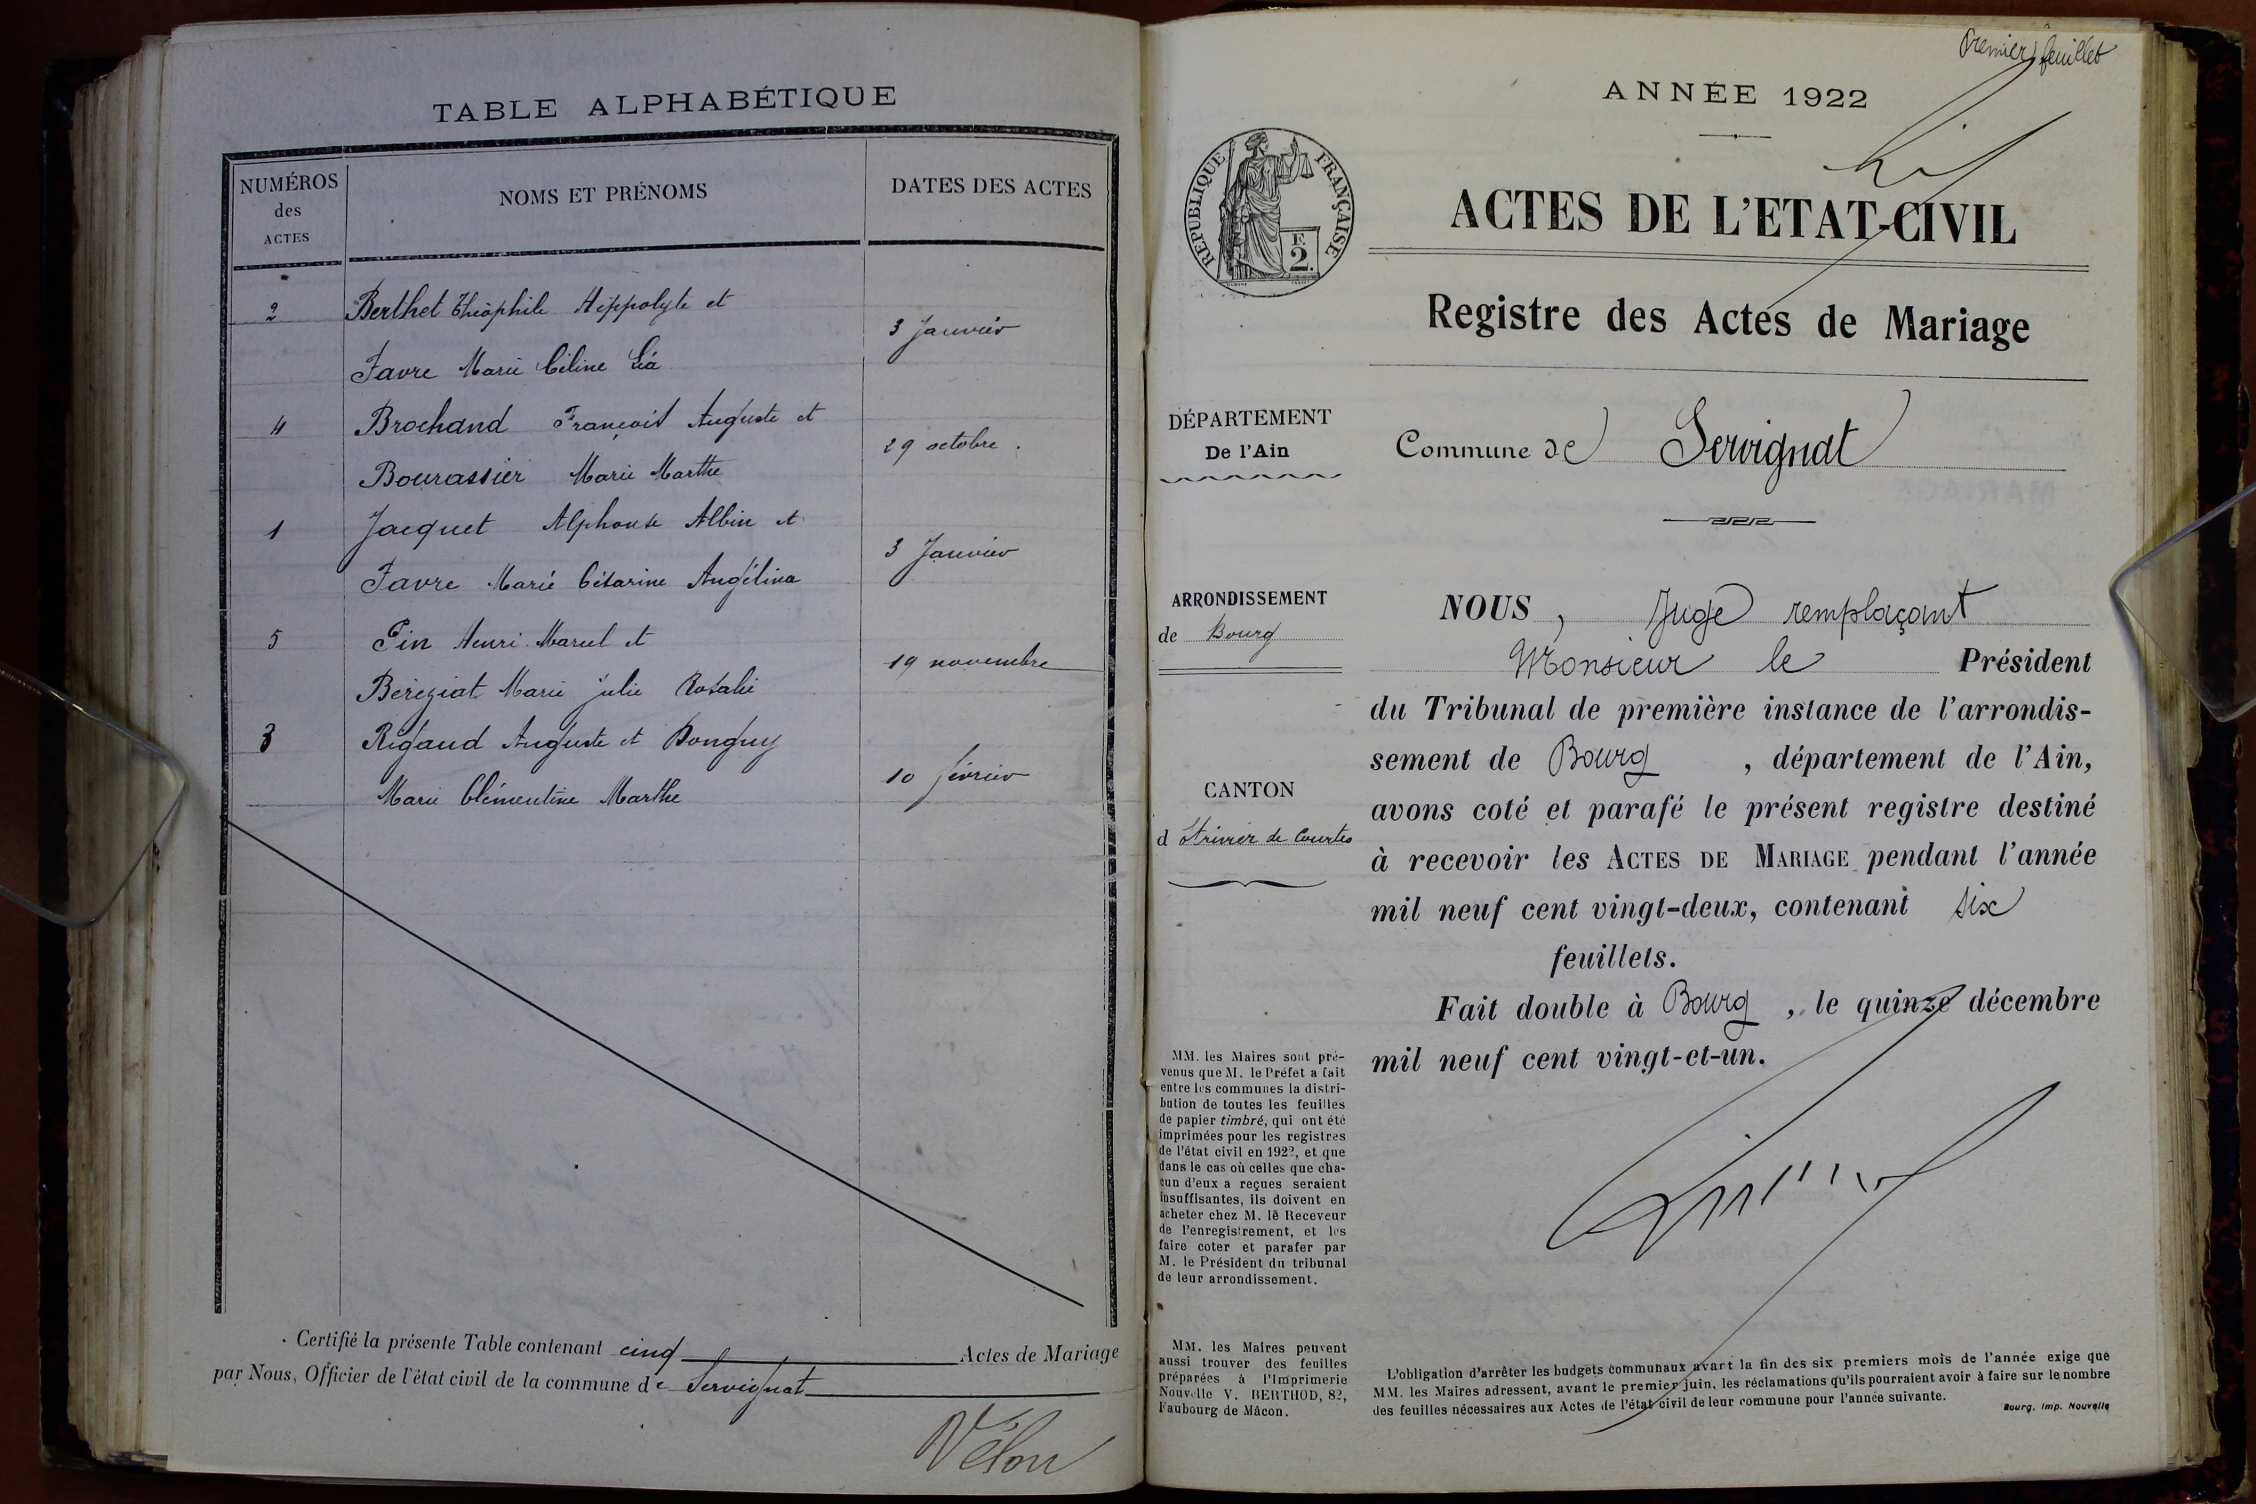 TABLE ALPHABÉTIQUE
NUMÉROS
des
ACTES
NOMS ET PRÉNOMS
DATES DES ACTES
2 Berthet Théophile Hippolyte et
3 Janvier
Favre Marie Céline Léa
4 Brochand François Auguste et
29 octobre.
Bourassier Marie Marthe
1 Jacquet Alphonse Albin et
3 Janvier
Favre Marie Césarine Angélina
5 Pin Henri Marcel et
19 novembre
Béréziat Marie Julie Rosalie
3 Rigaud Auguste et Donguy
10 février
Marie Clémentine Marthe
Certifié la présente Table contenant cinq Actes de Mariage
par Nous, Officier de l'état civil de la commune de Servignat
Vélon
Premier feuillet
ANNÉE 1922
RÉPUBLIQUE FRANÇAISE
F.
2.
ACTES DE L'ETAT-CIVIL
Registre des Actes de Mariage
DÉPARTEMENT
De l'Ain
Commune de Servignat
ARRONDISSEMENT
de Bourg
CANTON
d St Trivier de Courtes
NOUS, Juge remplaçant
Monsieur le Président
du Tribunal de première instance de l'arrondis-
sement de Bourg, département de l'Ain,
avons coté et parafé le présent registre destiné
à recevoir les ACTES DE MARIAGE pendant l'année
mil neuf cent vingt-deux, contenant six
feuillets.
Fait double à Bourg, le quinze décembre
mil neuf cent vingt-et-un.
MM. les Maires sont pré-
venus que M. le Préfet a fait
entre les communes la distri-
bution de toutes les feuilles
de papier timbré, qui ont été
imprimées pour les registres
de l'état civil en 1922, et que
dans le cas où celles que cha-
cun d'eux a reçues seraient
insuffisantes, ils doivent en
acheter chez M. le Receveur
de l'enregistrement, et les
faire coter et parafer par
M. le Président du tribunal
de leur arrondissement.
MM. les Maires peuvent
aussi trouver des feuilles
préparées à l'Imprimerie
Nouvelle V. BERTHOD, 82,
Faubourg de Mâcon.
L'obligation d'arrêter les budgets communaux avant la fin des six premiers mois de l'année exige que
MM. les Maires adressent, avant le premier juin, les réclamations qu'ils pourraient avoir à faire sur le nombre
des feuilles nécessaires aux Actes de l'état civil de leur commune pour l'année suivante.
Bourg. Imp. Nouvelle